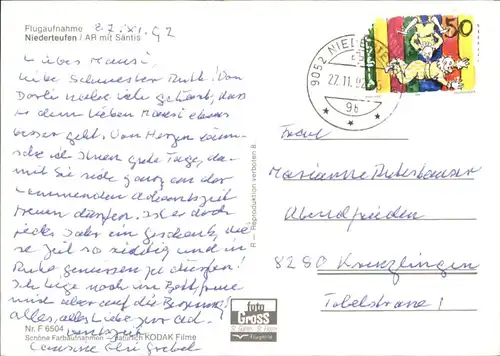 Flugaufnahme 27.XI.92
Niederteufen / AR mit Säntis
Liebes Mausi,
liebe Schwester Ruth! Von
Dorli habe ich gehört, dass
es dem lieben Mausi etwas
besser geht. Von Herzen wün-
sche ich Ihnen gute Tage, da-
mit Sie sich ganz an der
kommenden Adventszeit
freuen dürfen. Ist es doch
jedes Jahr ein Geschenk, die-
se Zeit so richtig und in
Ruhe geniessen zu dürfen!
Ich liege noch im Bett, freue
mich aber auf die Besserung!
alles, alles Liebe zur Ad-
ventszeit
Nr. F 6504
Schöne Farbaufnahmen – natürlich KODAK Filme
R — Reproduktion verboten 8
foto
Gross
St. Gallen
9052 NIEDERTEUFEN
27.11.92
9b
50
Frau
Marianne
Abendfrieden
8280 Kreuzlingen
Tobelstrasse 1